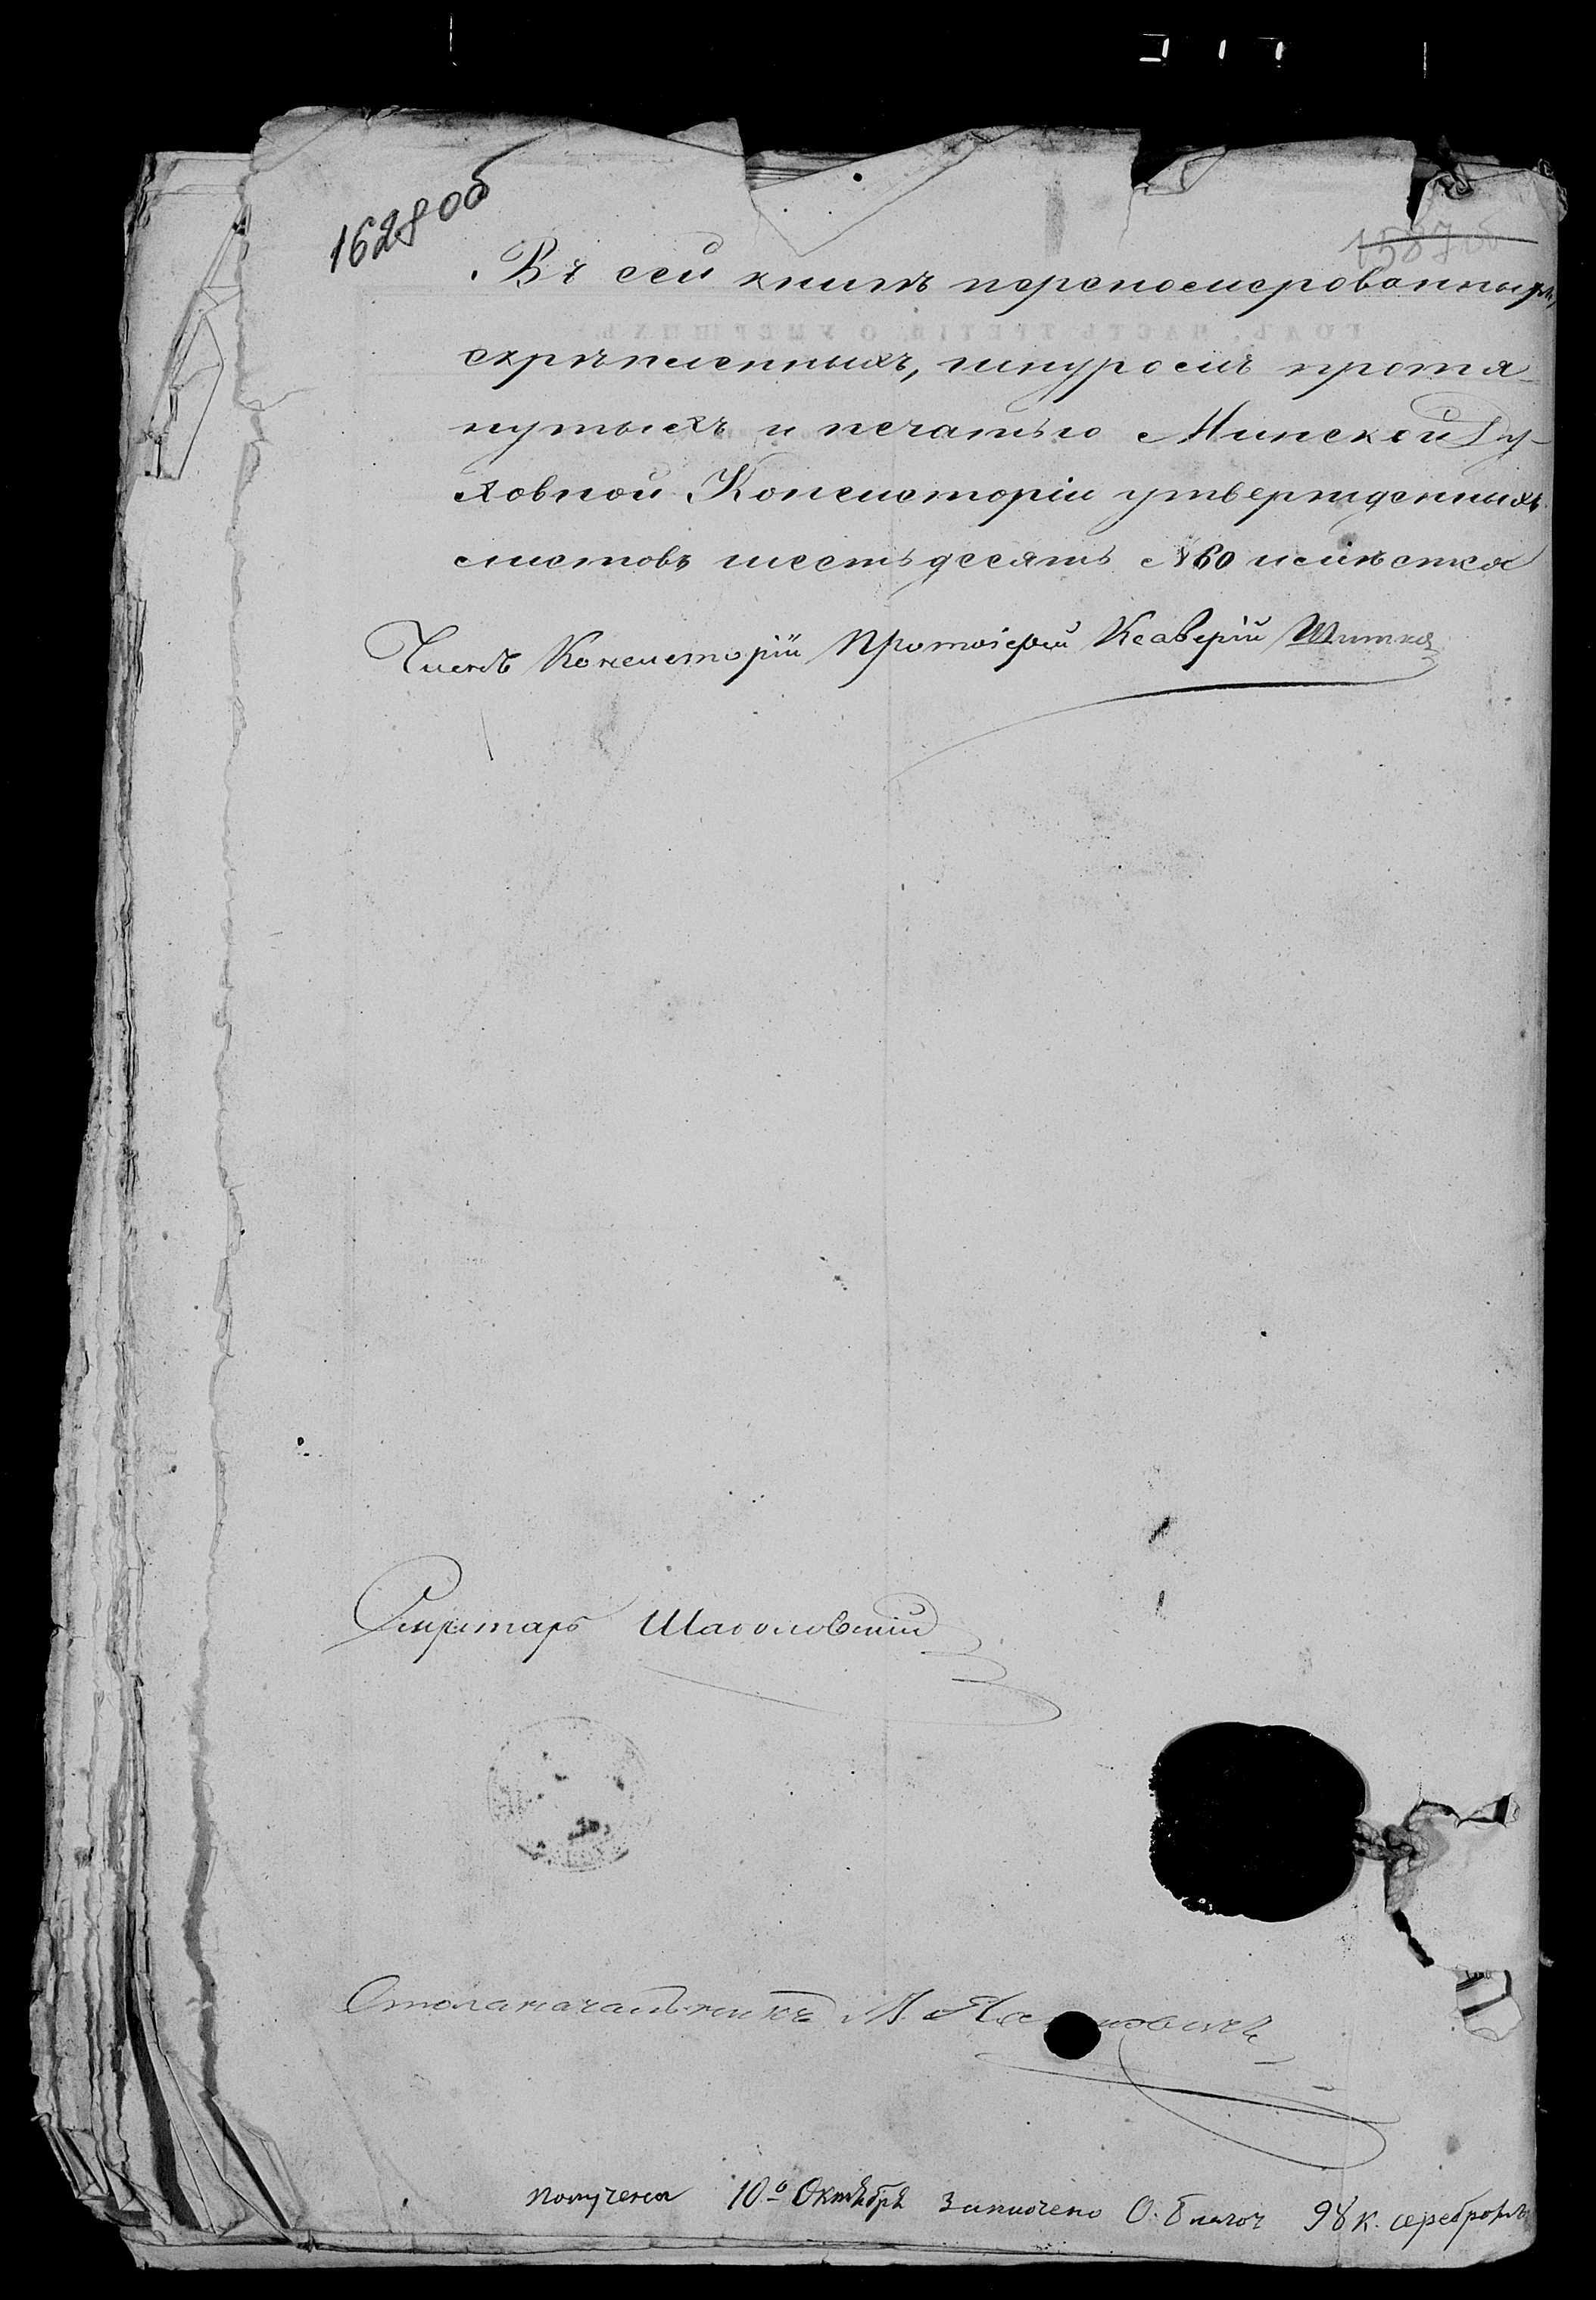 1628 об
1587 об
Въ сей книгѣ переномерованныхъ,
скрѣпленныхъ, шнуромъ протя-
нутыхъ и печатью Минской Ду-
ховной Консисторіи утвержденныхъ
листовъ шестьдесятъ № 60 имѣется
Членъ Консисторіи Протоіерей Ксаверій Шитко
Секретарь
Столоначальникъ
получена 10º Октября Заплочено О. Благоч 98 к. серебромъ